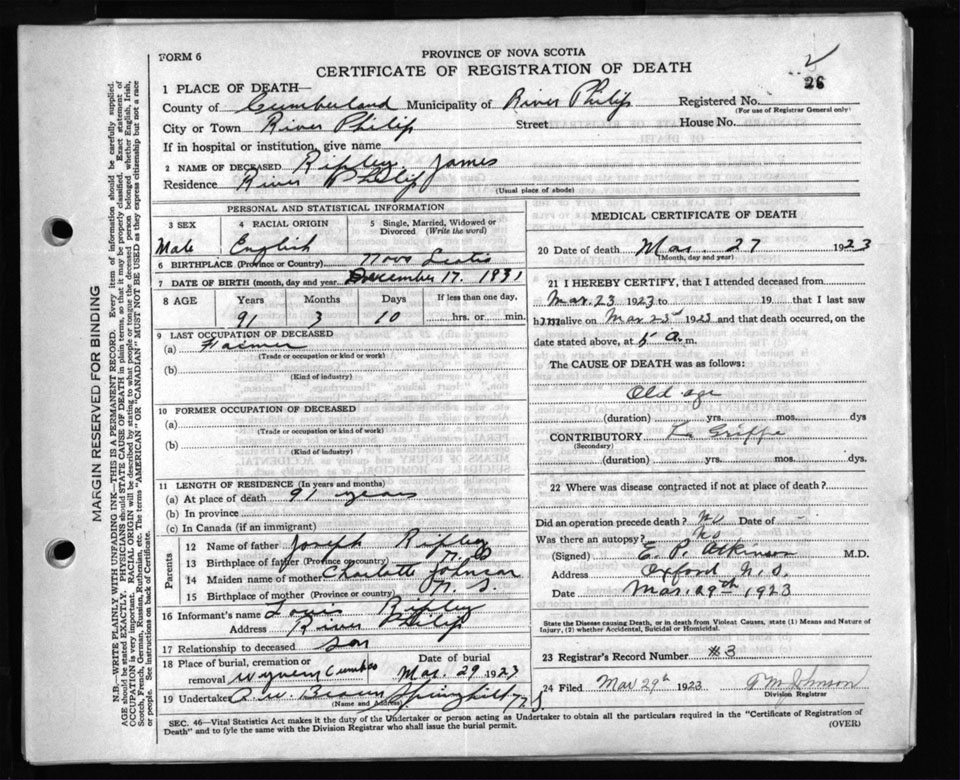 FORM 6
PROVINCE OF NOVA SCOTIA
CERTIFICATE OF REGISTRATION OF DEATH
26
1 PLACE OF DEATH—
County of Cumberland Municipality of River Philip Registered No.
(For use of Registrar General only)
City or Town River Philip Street House No.
If in hospital or institution, give name
2 NAME OF DECEASED Ripley James
Residence River Philip
(Usual place of abode)
PERSONAL AND STATISTICAL INFORMATION
3 SEX 4 RACIAL ORIGIN 5 Single, Married, Widowed or Divorced (Write the word)
Male English
6 BIRTHPLACE (Province or Country) Nova Scotia
7 DATE OF BIRTH (month, day and year) December 17. 1831
8 AGE Years Months Days If less than one day,
91 3 10 hrs. or min.
9 LAST OCCUPATION OF DECEASED
(a) Farmer
(Trade or occupation or kind or work)
(b)
(Kind of industry)
10 FORMER OCCUPATION OF DECEASED
(a)
(Trade or occupation or kind of work)
(b)
(Kind of industry)
11 LENGTH OF RESIDENCE (In years and months)
(a) At place of death 91 years
(b) In province
(c) In Canada (if an immigrant)
Parents
12 Name of father Joseph Ripley
13 Birthplace of father (Province or country)
14 Maiden name of mother Charlotte Johnson
15 Birthplace of mother (Province or country) N. S.
16 Informant's name Louis Ripley
Address River Philip
17 Relationship to deceased Son
18 Place of burial, cremation or removal Date of burial
Mar. 29 1923
19 Undertaker Springhill N.S.
(Name and Address)
MEDICAL CERTIFICATE OF DEATH
20 Date of death Mar. 27 1923
(Month, day and year)
21 I HEREBY CERTIFY, that I attended deceased from
Mar. 23 1923 to 19 that I last saw
him alive on Mar 23rd 1923 and that death occurred, on the
date stated above, at a.m.
The CAUSE OF DEATH was as follows:
Old age
(duration) yrs. mos. dys
CONTRIBUTORY La Grippe
(Secondary)
(duration) yrs. mos. dys.
22 Where was disease contracted if not at place of death?
Did an operation precede death? No Date of -
Was there an autopsy? No
(Signed) E. P. Atkinson M.D.
Address Oxford N.S.
Date Mar. 29th 1923
State the Disease causing Death, or in death from Violent Causes, state (1) Means and Nature of Injury, (2) whether Accidental, Suicidal or Homicidal.
23 Registrar's Record Number #3
24 Filed Mar 29th 1923 Johnson
Division Registrar
SEC. 46—Vital Statistics Act makes it the duty of the Undertaker or person acting as Undertaker to obtain all the particulars required in the "Certificate of Registration of
Death" and to fyle the same with the Division Registrar who shall issue the burial permit.
(OVER)
MARGIN RESERVED FOR BINDING
N.B.—WRITE PLAINLY WITH UNFADING INK—THIS IS A PERMANENT RECORD. Every item of information should be carefully supplied.
AGE should be stated EXACTLY. PHYSICIANS should STATE CAUSE OF DEATH in plain terms, so that it may be properly classified. Exact statement of
OCCUPATION is very important. RACIAL ORIGIN will be described by stating to what people or tongue the deceased person belonged whether English, Irish,
Scotch, French, German, Russian, Ruthenian, etc. The terms "AMERICAN" OR "CANADIAN" MUST NOT BE USED as they express citizenship but not a race
or people. See instructions on back of Certificate.